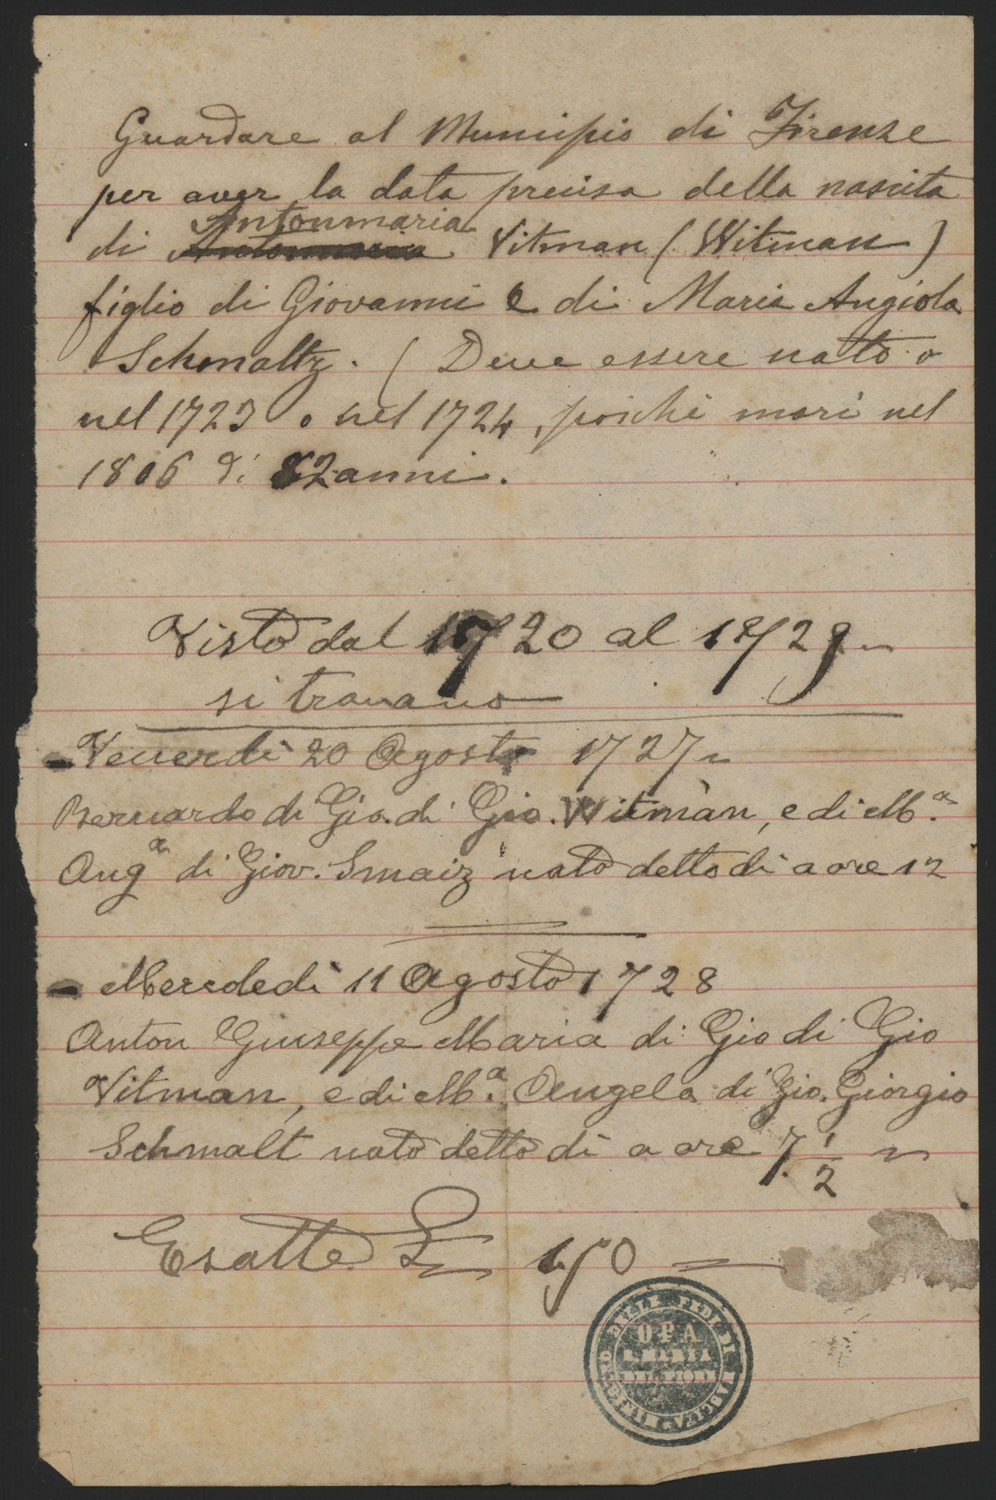 Guardare al Municipio di Firenze
per aver la data precisa della nascita
Antonmaria
di Antonmaria Vitman (Witman)
figlio di Giovanni e di Maria Angiola
Schmaltz. (Deve essere nato o
nel 1723 o nel 1724, poichè morì nel
1806 di 82 anni.
Visto dal 1720 al 1729
si trovano
Venerdì 20 Agosto 1727
Bernardo di Gio. di Gio. Witman, e di M.a
Ang.a di Giov. Smaiz nato detto dì a ore 12
Mercoledì 11 Agosto 1728
Anton Giuseppe Maria di Gio di Gio
Vitman, e di M.a Angela di Gio. Giorgio
Schmalt nato detto dì a ore 7 1/2
Esatte L 1,50
MINISTRO DELLE FEDI DI NASCITA
OPA
S. MARIA
DEL FIORE